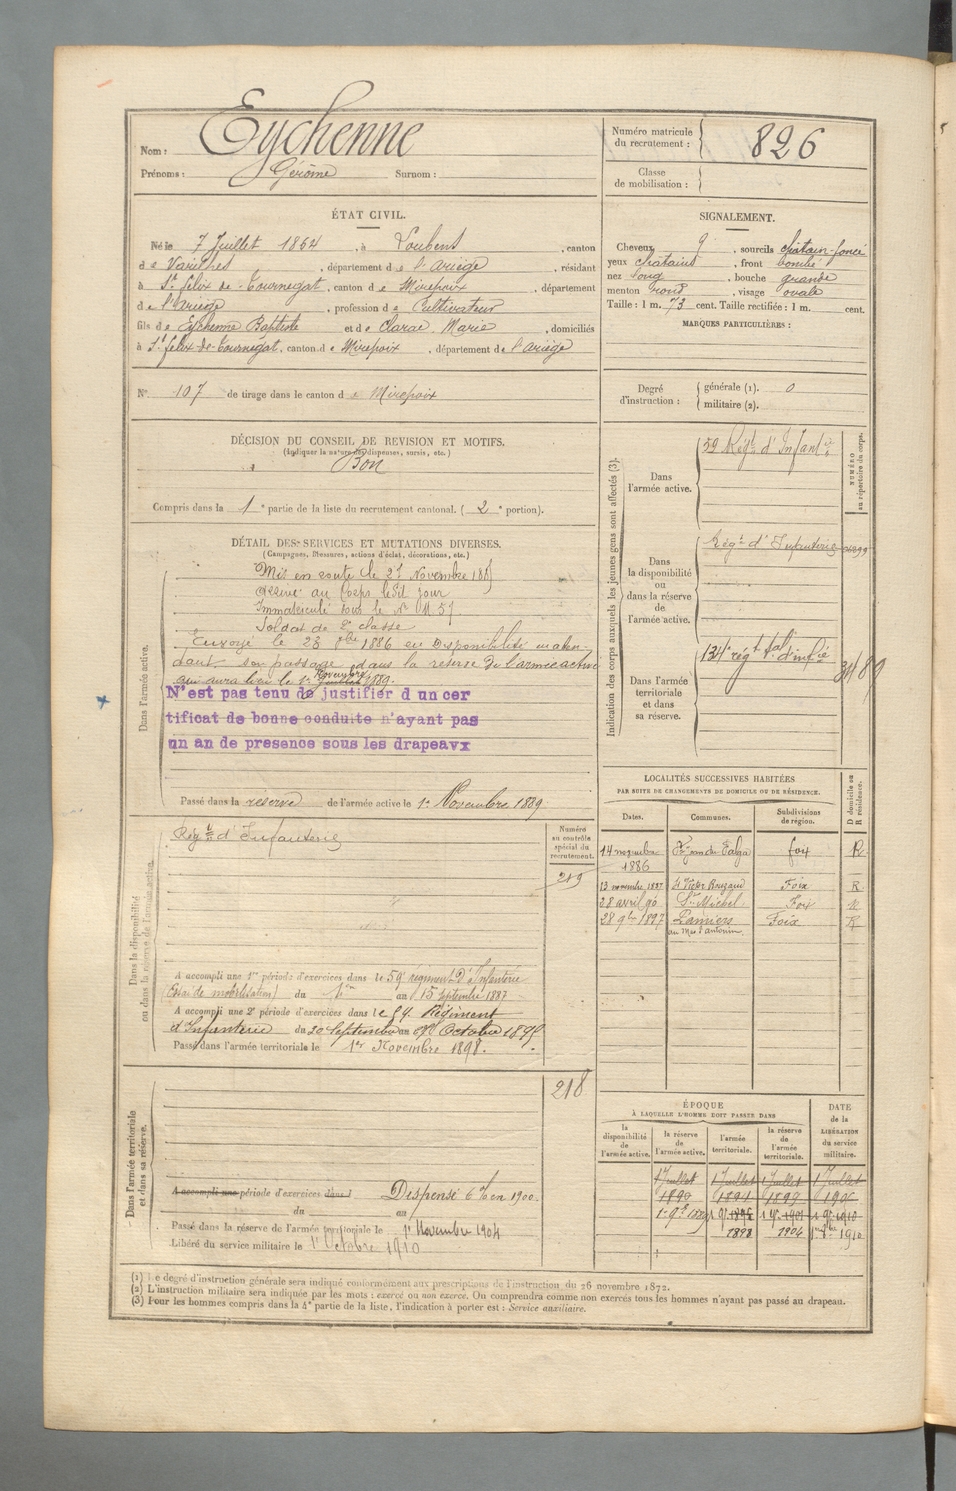 Nom : Eychenne
Prénoms : Gérôme Surnom :
Numéro matricule
du recrutement : 826
Classe
de mobilisation :
ÉTAT CIVIL.
Né le 7 Juillet 1864, à Loubens, canton
de Varilhes, département de l'Ariège, résidant
à St félix-de-Tournegat, canton de Mirepoix, département
de l'Ariège, profession de Cultivateur
fils de Eychenne Baptiste et de Clarac, Marie, domiciliés
à St félix-de-Tournegat, canton de Mirepoix, département de l'ariège
N° 107 de tirage dans le canton de Mirepoix
SIGNALEMENT.
Cheveux 9, sourcils châtain-foncé
yeux châtains, front bombé
nez long, bouche grande
menton rond, visage ovale
Taille : 1 m. 73 cent. Taille rectifiée : 1 m. cent.
MARQUES PARTICULIÈRES :
Degré
d'instruction :
générale (1). 0
militaire (2).
DÉCISION DU CONSEIL DE REVISION ET MOTIFS.
(Indiquer la nature des dispenses, sursis, etc.)
Bon
Compris dans la 1e partie de la liste du recrutement cantonal. (2e portion).
DÉTAIL DES SERVICES ET MUTATIONS DIVERSES.
(Campagnes, blessures, actions d'éclat, décorations, etc.)
Dans l'armée active.
Mis en route le Novembre 188
Arrivé au Corps ledit jour
Immatriculé sous le N°
Soldat de 2e classe
Envoyé le 23 1886 en disponibilité en atten-
dant son passage dans la réserve de l'armée active
qui aura lieu le 1er Juillet Novembre 1889.
N'est pas tenu de justifier d un cer
tificat de bonne conduite n'ayant pas
un an de presence sous les drapeavx
Passé dans la reserve de l'armée active le 1er Novembre 1889
Indication des corps auxquels les jeunes gens sont affectés (3).
NUMÉRO
au répertoire du corps.
Dans
l'armée active.
59 Régt d'Infante
Dans
la disponibilité
ou
dans la réserve
de
l'armée active.
Régt d'Infanterie
Dans l'armée
territoriale
et dans
sa réserve.
134e régt tal d'infie
LOCALITÉS SUCCESSIVES HABITÉES
PAR SUITE DE CHANGEMENTS DE DOMICILE OU DE RÉSIDENCE.
D domicile ou
R résidence.
Dates. Communes. Subdivisions
de région.
14 novembre
1886 St jean du Falga foix R
13 novembre 1887 St Victor Rouzaud Foix R
28 avril 90 St Michel Foix R
28 9bre 1897 Pamiers Foix R
au Mas d'antonin
Dans la disponibilité
ou dans la réserve de l'armée active.
Régt d'Infanterie
Numéro
au contrôle
spécial du
recrutement.
219
A accompli une 1re période d'exercices dans le 59e régiment d'Infanterie
(Essai de mobilisation) du 1er au 15 septembre 1887
A accompli une 2e période d'exercices dans le 59 Régiment
d'Infanterie du 30 Septembre au Octobre
Passé dans l'armée territoriale le 1er Novembre 1898.
Dans l'armée territoriale
et dans sa réserve.
218
A accompli une période d'exercices dans Dispensé en 1900.
du au
Passé dans la réserve de l'armée territoriale le 1er Novembre 1904
Libéré du service militaire le 1er Octobre 1910
ÉPOQUE
À LAQUELLE L'HOMME DOIT PASSER DANS
DATE
de la
LIBÉRATION
du service
militaire.
la
disponibilité
de
l'armée active.
la réserve
de
l'armée active.
l'armée
territoriale.
la réserve
de
l'armée
territoriale.
1 Juillet 1 Juillet 1 Juillet 1 Juillet
1890 1894 1899
1898 1904 1910
(1) Le degré d'instruction générale sera indiqué conformément aux prescriptions de l'instruction du 26 novembre 1872.
(2) L'instruction militaire sera indiquée par les mots : exercé ou non exercé. On comprendra comme non exercés tous les hommes n'ayant pas passé au drapeau.
(3) Pour les hommes compris dans la 4e partie de la liste, l'indication à porter est : Service auxiliaire.